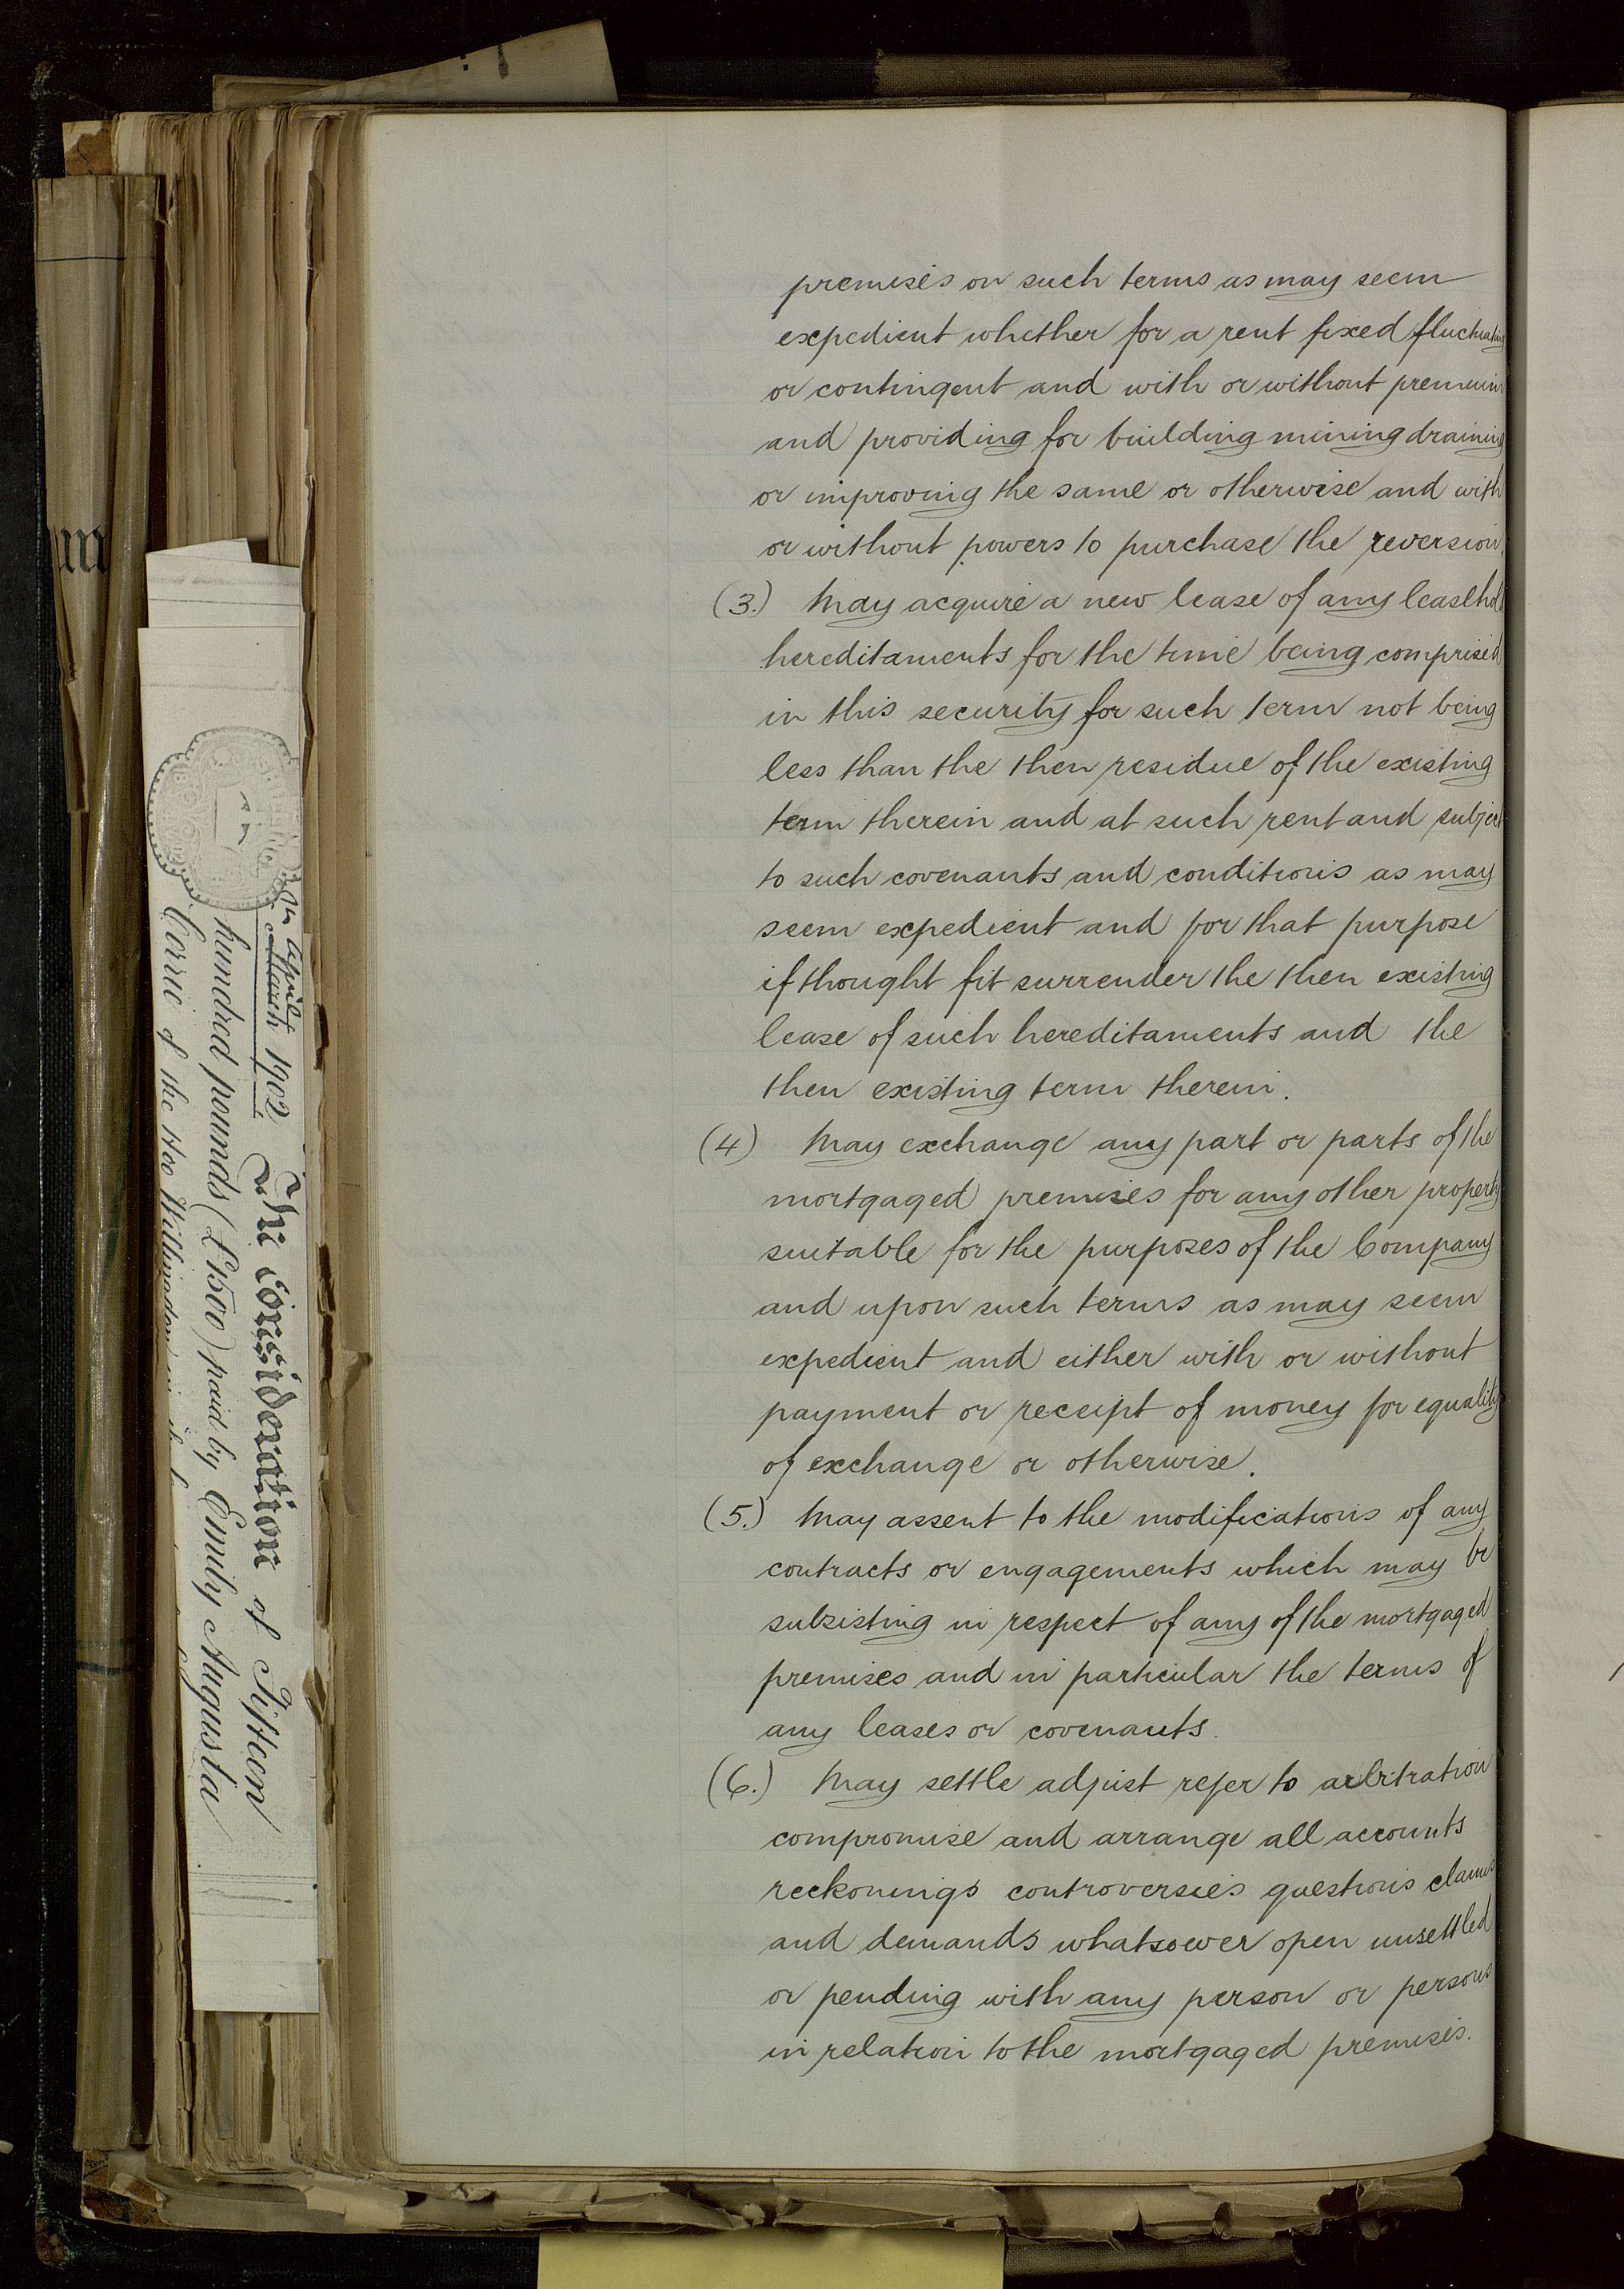 premises on such terms as may seem
expedient whether for a rent fixed fluctuating
or contingent and with or without premium
and providing for building mining draining
or improving the same or otherwise and with
or without powers to purchase the reversion.
(3.) May acquire a new lease of any leasehold
hereditaments for the time being comprised
in this security for such term not being
less than the then residue of the existing
term therein and at such rent and subject
to such covenants and conditions as may
seem expedient and for that purpose
if thought fit surrender the then existing
lease of such hereditaments and the
then existing term therein.
(4) May exchange any part or parts of the
mortgaged premises for any other property
suitable for the purposes of the Company
and upon such terms as may seem
expedient and either with or without
payment or receipt of money for equality
of exchange or otherwise.
(5.) May assent to the modifications of any
contracts or engagements which may be
subsisting in respect of any of the mortgaged
premises and in particular the terms of
any leases or covenants.
(6.) May settle adjust refer to arbitration
compromise and arrange all accounts
reckonings controversies questions claims
and demands whatsoever open unsettled
or pending with any person or persons
in relation to the mortgaged premises.
April
March 1902 In Consideration of Fifteen
hundred pounds (£1500) paid by Emily Augusta
Corrie of the Hoo Willingdon